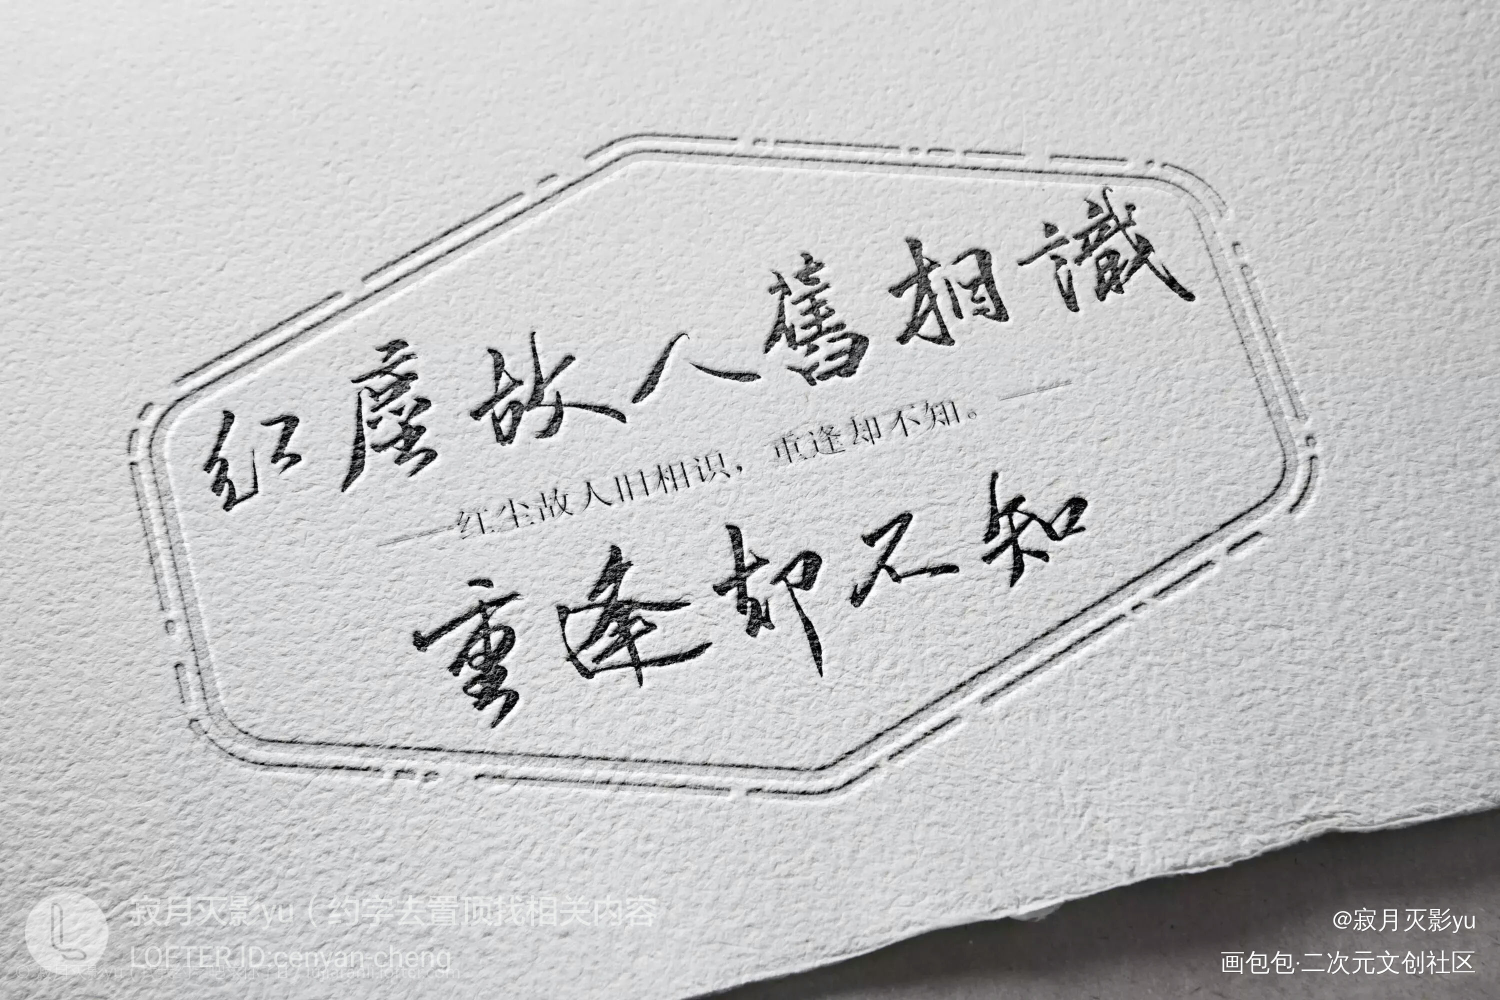 红塵故人舊相識
——红尘故人旧相识，重逢却不知。——
重逢却不知
寂月灭影yu（约字去置顶找相关内容
LOFTER ID:cenyan-cheng
@寂月灭影yu
画包包·二次元文创社区